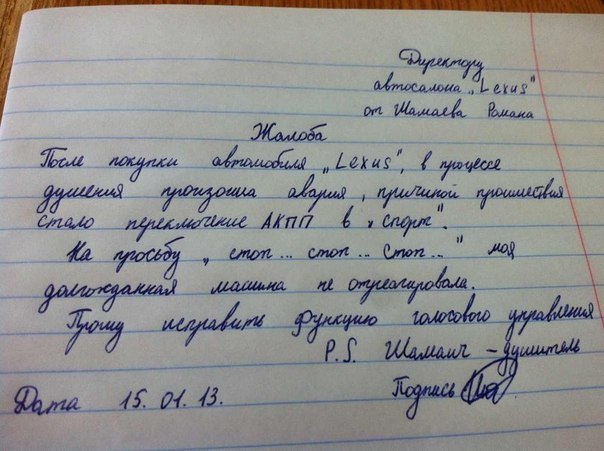 Директору
автосалона „Lexus"
от Шамаева Романа
Жалоба
После покупки автомобиля „Lexus", в процессе
душения произошла авария, причиной проишествия
стало переключение АКПП в „спорт".
На просьбу „ стоп... стоп... стоп..." моя
долгожданная машина не отреагировала.
Прошу исправить функцию голосового управления
P.S. Шамаич – душитель
Дата 15. 01. 13. Подпись